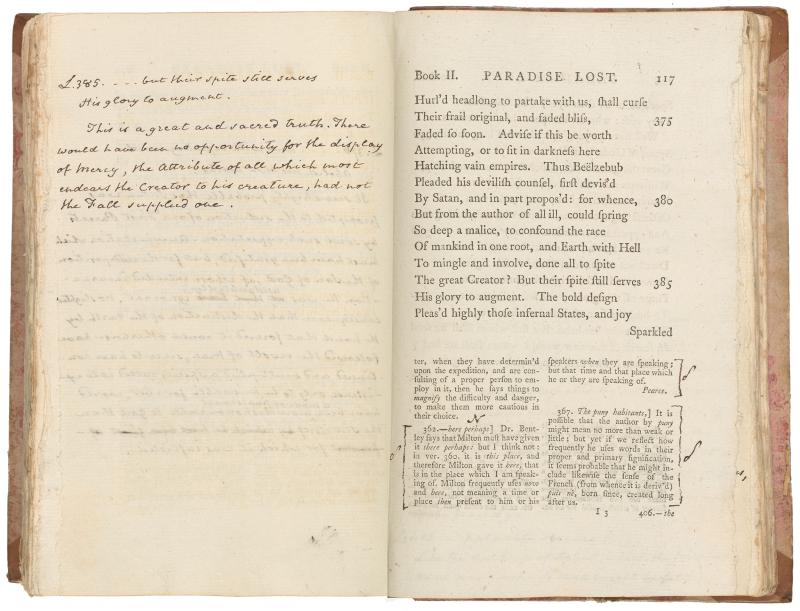 L.385. - - - but their spite still serves
His glory to augment.
This is a great and sacred truth. There
would have been no opportunity for the display
of Mercy, the Attribute of all which most
endears the Creator to his creature, had not
the Fall supplied one.
Book II. PARADISE LOST. 117
Hurl'd headlong to partake with us, ſhall curſe
Their frail original, and faded bliſs, 375
Faded ſo ſoon. Adviſe if this be worth
Attempting, or to ſit in darkneſs here
Hatching vain empires. Thus Beëlzebub
Pleaded his deviliſh counſel, firſt devis'd
By Satan, and in part propos'd: for whence, 380
But from the author of all ill, could ſpring
So deep a malice, to confound the race
Of mankind in one root, and Earth with Hell
To mingle and involve, done all to ſpite
The great Creator? But their ſpite ſtill ſerves 385
His glory to augment. The bold deſign
Pleas'd highly thoſe infernal States, and joy
Sparkled
ter, when they have determin'd
upon the expedition, and are con-
ſulting of a proper perſon to em-
ploy in it, then he ſays things to
magnify the difficulty and danger,
to make them more cautious in
their choice.
N
362.—here perhaps] Dr. Bent-
ley ſays that Milton muſt have given
it there perhaps: but I think not:
in ver. 360. it is this place, and
therefore Milton gave it here, that
is in the place which I am ſpeak-
ing of. Milton frequently uſes now
and here, not meaning a time or
place then preſent to him or his
ſpeakers when they are ſpeaking;
but that time and that place which
he or they are ſpeaking of.
Pearce.
367. The puny habitants,] It is
poſſible that the author by puny
might mean no more than weak or
little; but yet if we reflect how
frequently he uſes words in their
proper and primary ſignification,
it ſeems probable that he might in-
clude likewiſe the ſenſe of the
French (from whence it is deriv'd)
puis nè, born ſince, created long
after us.
I 3 406.—the